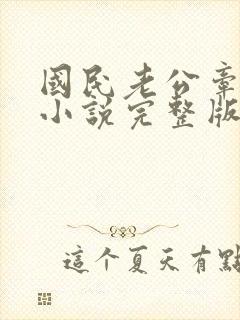 國民老公章
小說完整版
這个夏天有點